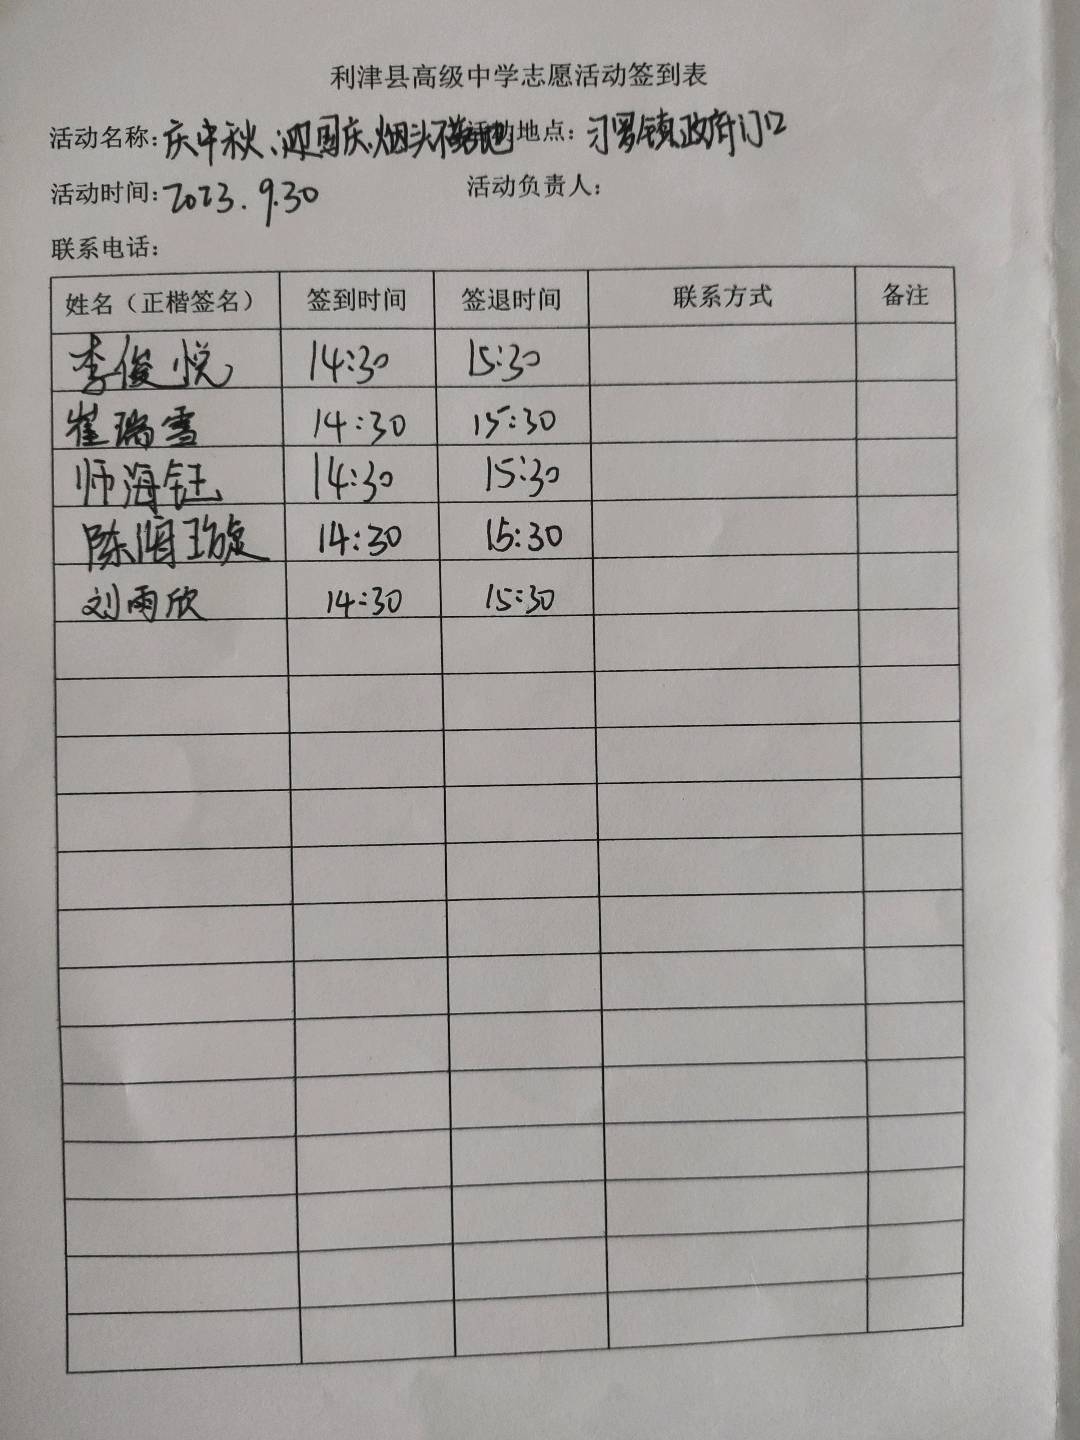 利津县高级中学志愿活动签到表
活动名称：庆中秋、迎国庆，烟头不落地 活动地点：刁罗镇政府门口
活动时间：2023.9.30 活动负责人：
联系电话：
姓名（正楷签名） 签到时间 签退时间 联系方式 备注
李俊悦 14:30 15:30
崔瑞雪 14:30 15:30
师海钰 14:30 15:30
陈湘玚旋 14:30 15:30
刘雨欣 14:30 15:30